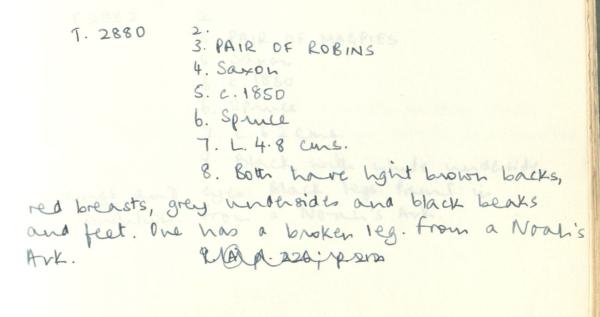 T. 2880 2.
3. PAIR OF ROBINS
4. Saxon
5. c. 1850
6. Spruce
7. L. 4.8 cms.
8. Both have light brown backs,
red breasts, grey undersides and black beaks
and feet. One has a broken leg. From a Noah's
Ark.